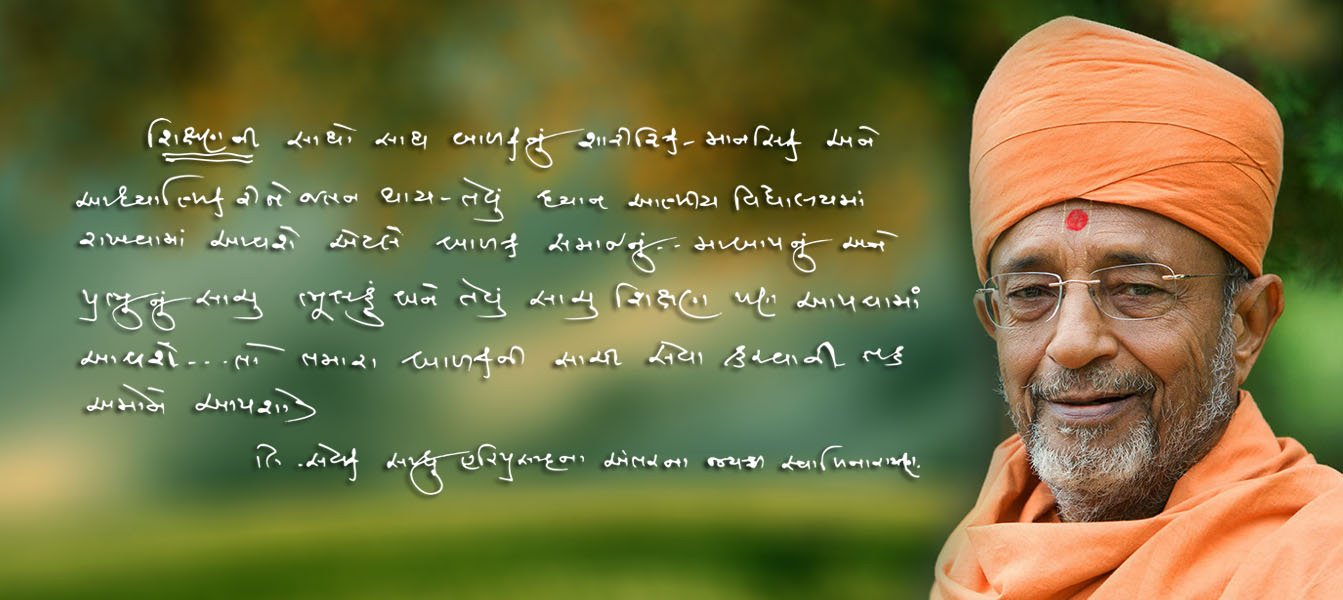 શિક્ષણની સાથો સાથ બાળકનું શારીરિક-માનસિક અને
આધ્યાત્મિક રીતે જતન થાય-તેવું ધ્યાન આત્મીય વિદ્યાલયમાં
રાખવામાં આવશે એટલે બાળક સમાજનું.. માબાપનું અને
પ્રભુનું સાચુ બને તેવું સાચુ શિક્ષણ પણ આપવામાં
આવશે...તો તમારા બાળકની સાચી સેવા કરવાની તક
અમોને આપશો
લિ.સેવક સાધુ હરિપ્રસાદના અંતરના જયશ્રી સ્વામિનારાયણ.